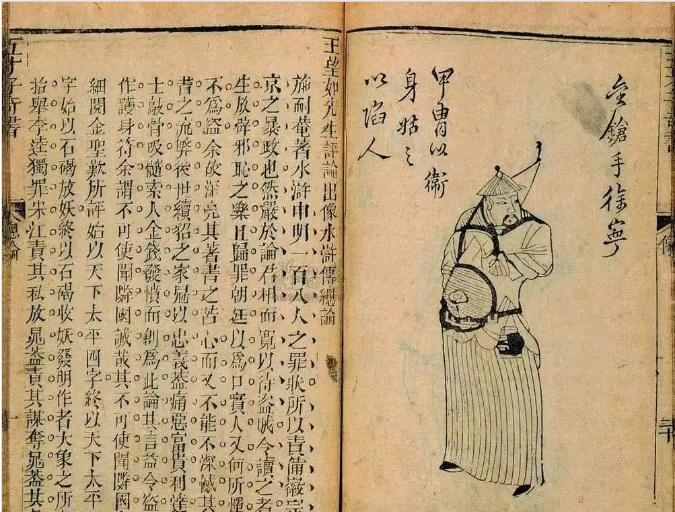 金鎗手徐寧
甲冑以衛
身姑之
以陷人
像
三十
王望如先生評論出像水滸傳總論
施耐菴著水滸申明一百八人之罪狀所以責備徽宗
京之暴政也然嚴於論君相而寬以待盜賊令讀之者
生放辟邪恥之樂且歸罪朝廷以為口實人又何所憚
不為盜余故深亮其著書之苦心而又不能不深憾其
昔之流弊後世續貂之家冠以忠義蓋痛惡富貴利達
士敲骨吸髓索人金錢發憤而創為此論其言益令盜
作護身符余謂不可使聞隣國誠哉其不可使聞隣國
細閱金聖歎所評始以天下太平四字終以天下太平
字始以石碣放妖終以石碣收妖發明作者大象之所
抬舉李逵獨罪宋江責其私放晁蓋責其謀奪晁蓋其
五才子奇書
總論
一